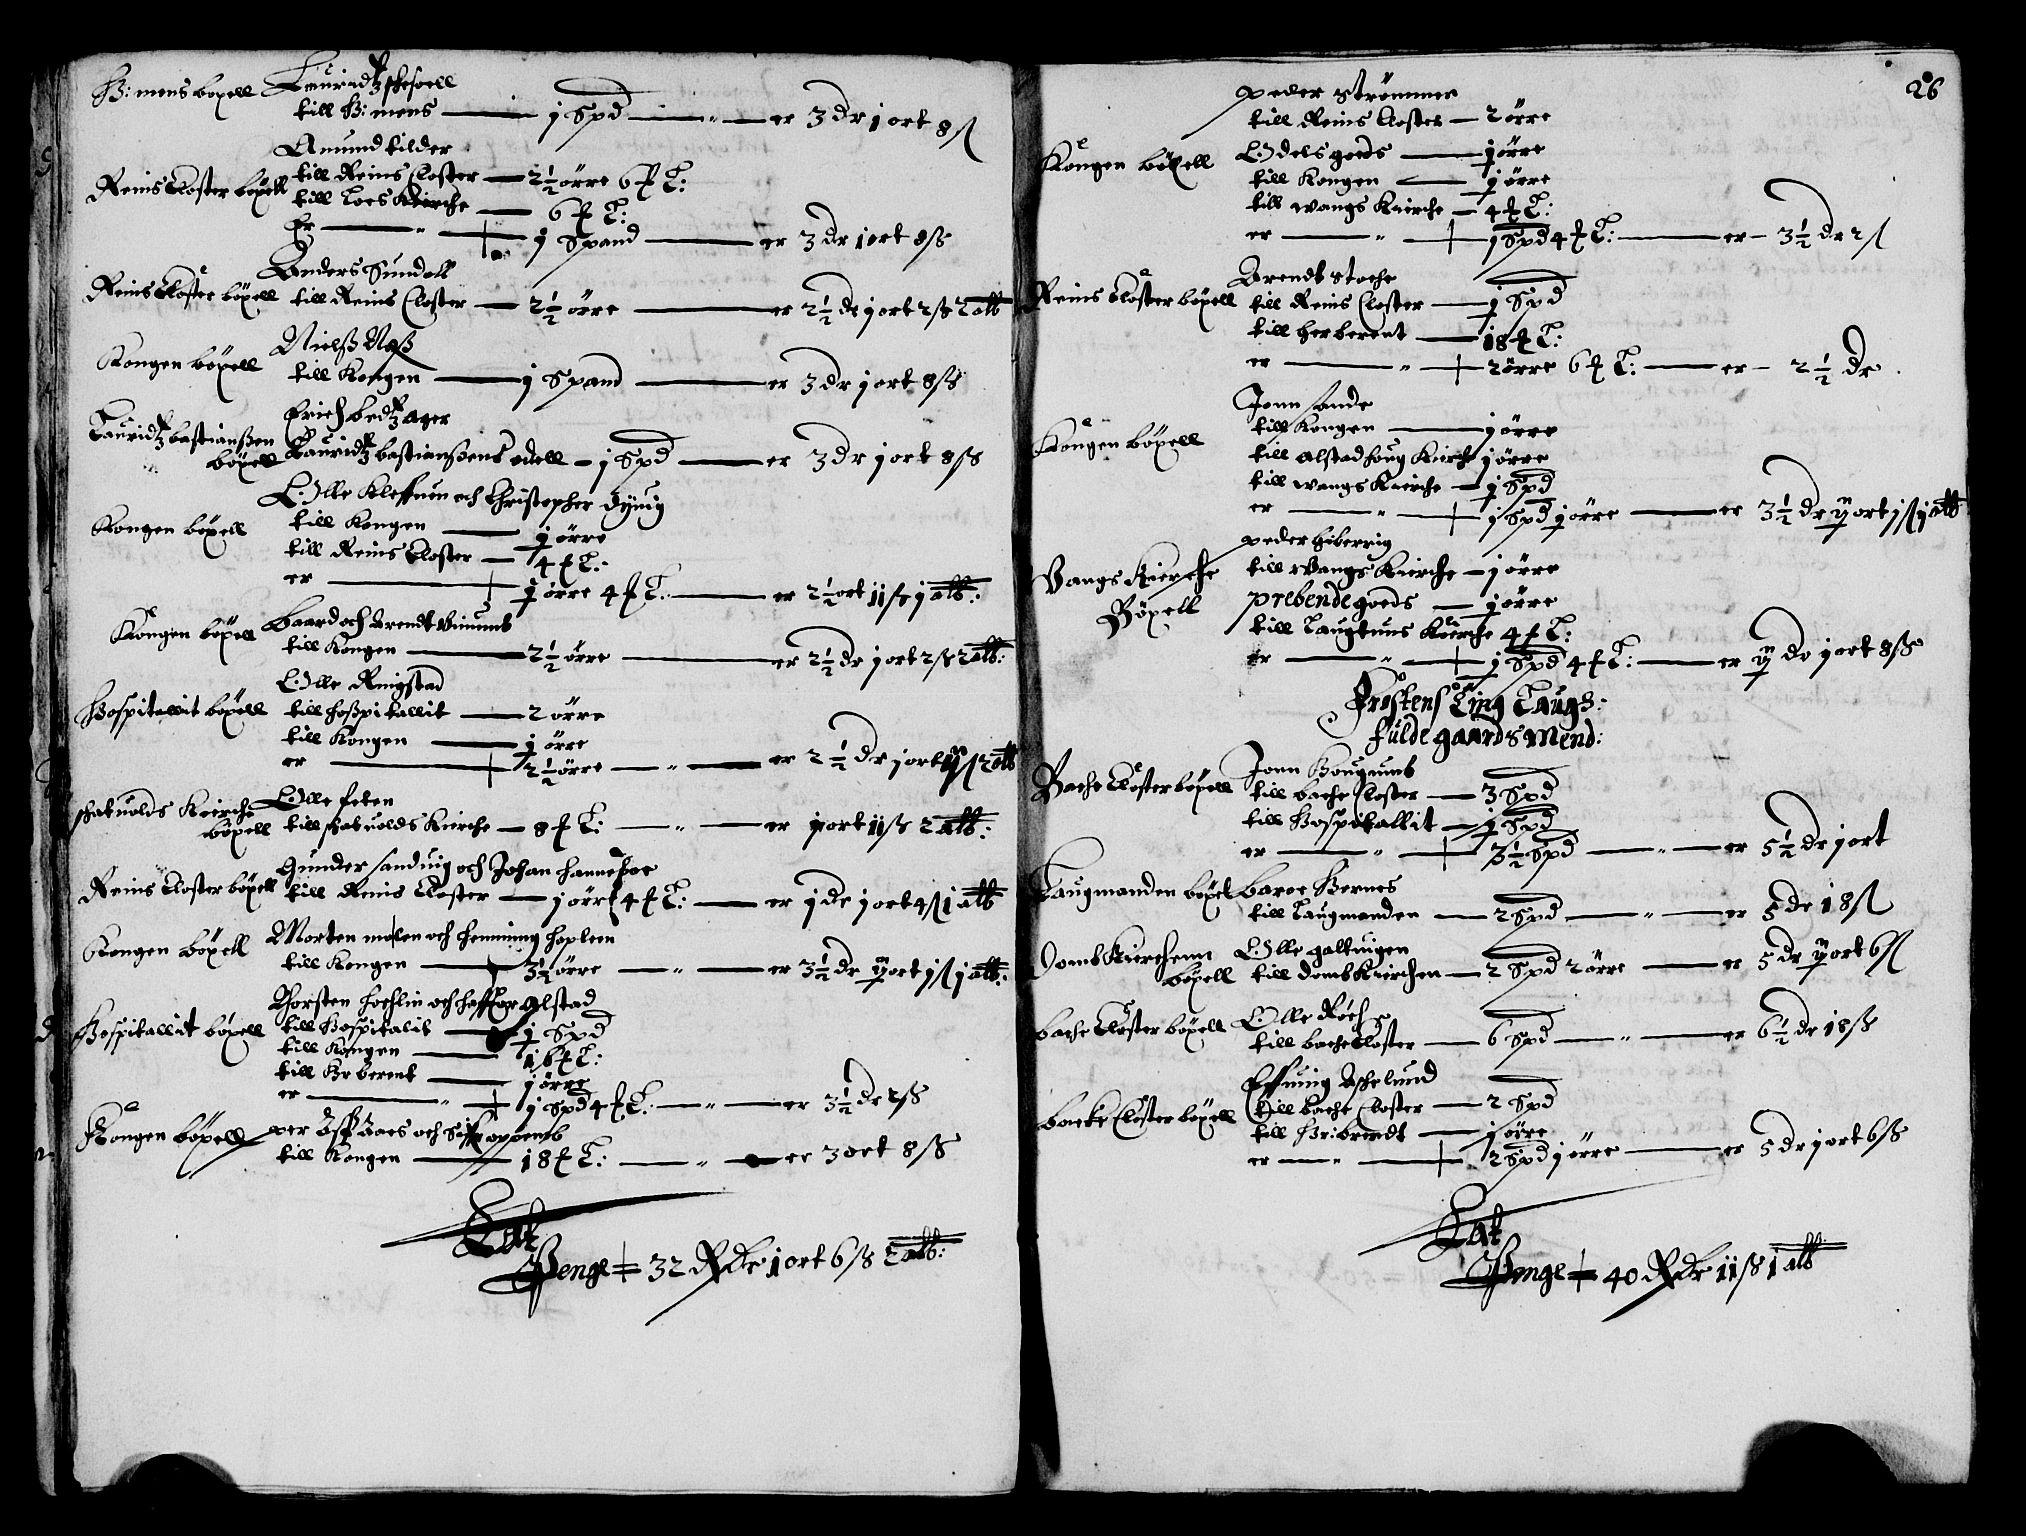 H: mens böxell Lauridtz Schefuell
till H: mens — j Spd — er 3 dr j ort 8 ß
Amund tilder
Reins Closter böxell till Reins Closter — 2½ örre 6 # T:
till Loes Kierche — 6 # T:
Er — j Spand — er 3 dr j ort 8 ß
Anders Sundall
Reins Closter böxell till Reins Closter — 2½ örre — er 2½ dr j ort 2 ß 2 alb
Nielß Naß
Kongen böxell till Kongen — j Spand — er 3 dr j ort 8 ß
Erich bedtzager
Lauridtz bastianßen böxell Lauridtz bastianßens odell — j Spd — er 3 dr j ort 8 ß
Olle Kleffuen och Christopher
Kongen böxell till Kongen — j örre
till Reins Closter — 4 # T:
er — j örre 4 # T: — er 2½ ort 11 ß j alb:
Baard och Arendt Vinumb
Kongen böxell till Kongen — 2½ örre — er 2½ dr j ort 2 ß 2 alb:
Olle Ringstad
Hospitallit böxell till hoßpitallit — 2 örre
till Kongen — j örre
er — 2½ örre — er 2½ dr j ort 2 alb
Olle feten
Schatuolds Kierche böxell till schatuolds Kirche — 8 # T: — er ij ort 11 ß 2 alb:
Gunder sanduig och Johan
Reins Closter böxell till Reins Closter — j örre 4 # T: — er j dr j ort 4 ß j alb
Morten molen och hemming hopleen
Kongen böxell till Kongen — 3½ örre — er 3½ dr ij ort j ß j alb:
Thorsten och alstad
Hospitallit böxell till Hospitalit — j Spd
till Kongen — 16 # T:
till Hr berent — j örre
er — j Spd 4 # T: — er 3½ dr 2 ß
Kongen böxell per och
till Kongen — 18 # T: — er 3 ort 8 ß
Lat
Penge 32 Rdr j ort 6 ß 2 alb:
26
peder Strømmer
till Reins Closter — 2 örre
Kongen böxell Odels goeds — j örre
till Kongen — j örre
till wangs Kierche — 4 # T:
er — j Spd 4 # T: — er 3½ dr 2 ß
Arendt Stoche
Reins Closter böxell till Reins Closter — j Spd
till her berent — 18 # T:
er — 2 örre 6 # T: — er 2½ dr
Jonn sande
Kongen böxell till Kongen — j örre
till alstadhoug Kirche j örre
till wangs Kierche — j Spd
er — j Spd j örre — er 3½ dr ij ort j ß j alb
peder hiberrig
Vangs Kierche Böxell till Vangs Kierche — j örre
prebende goeds — j örre
till Laugtuns Kierche 4 # T:
er — j Spd 4 # T: — er iij dr j ort 8 ß
Frostens Ting Laugh:
fulde gaards Mend:
Jonn Hougumb
Bache Closter böxell till bache Closter — 3 Spd
till Hospitallit — j Spd
er — 3½ Spd — er 5½ dr j ort
Laugmanden böxel baroe Bernes
till Laugmanden — 2 Spd — er 5 dr 18 ß
Olle galtuigen
Domb Kirchenn böxell till domb Kirchen — 2 Spd 2 örre — er 5 dr ij ort 6 ß
Olle Röch
bache Closter böxell till bache Closter — 6 Spd — er 6½ dr 18 ß
Effuing Aschelund
backe Closter böxell till bache Closter — 2 Spd
till Hr: brendt — j örre
er — 2 Spd j örre — er 5 dr j ort 6 ß
Lat
Penge 40 Rdr 11 ß j alb